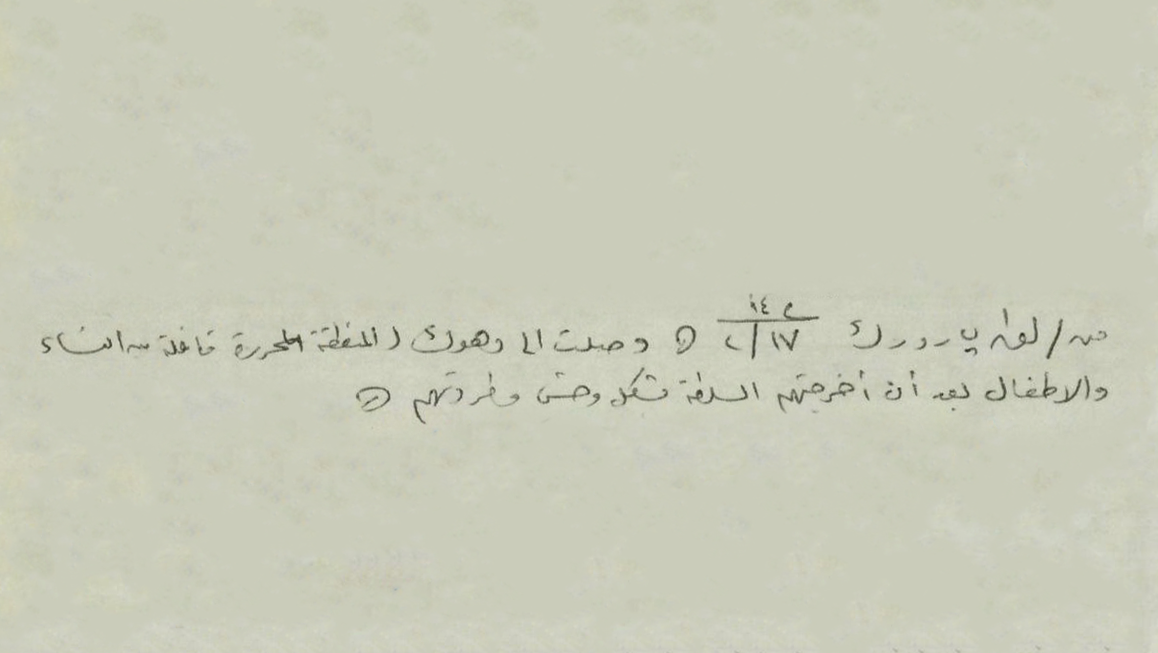 من / لقوات پاروورك ع ٩٤ ١٧/٢ (٥) وصلت الى دهوك / المنطقة المحررة قافلة من النساء
والاطفال بعد أن أخرجتهم السلطة بشكل وحشي وطردتهم (٥)